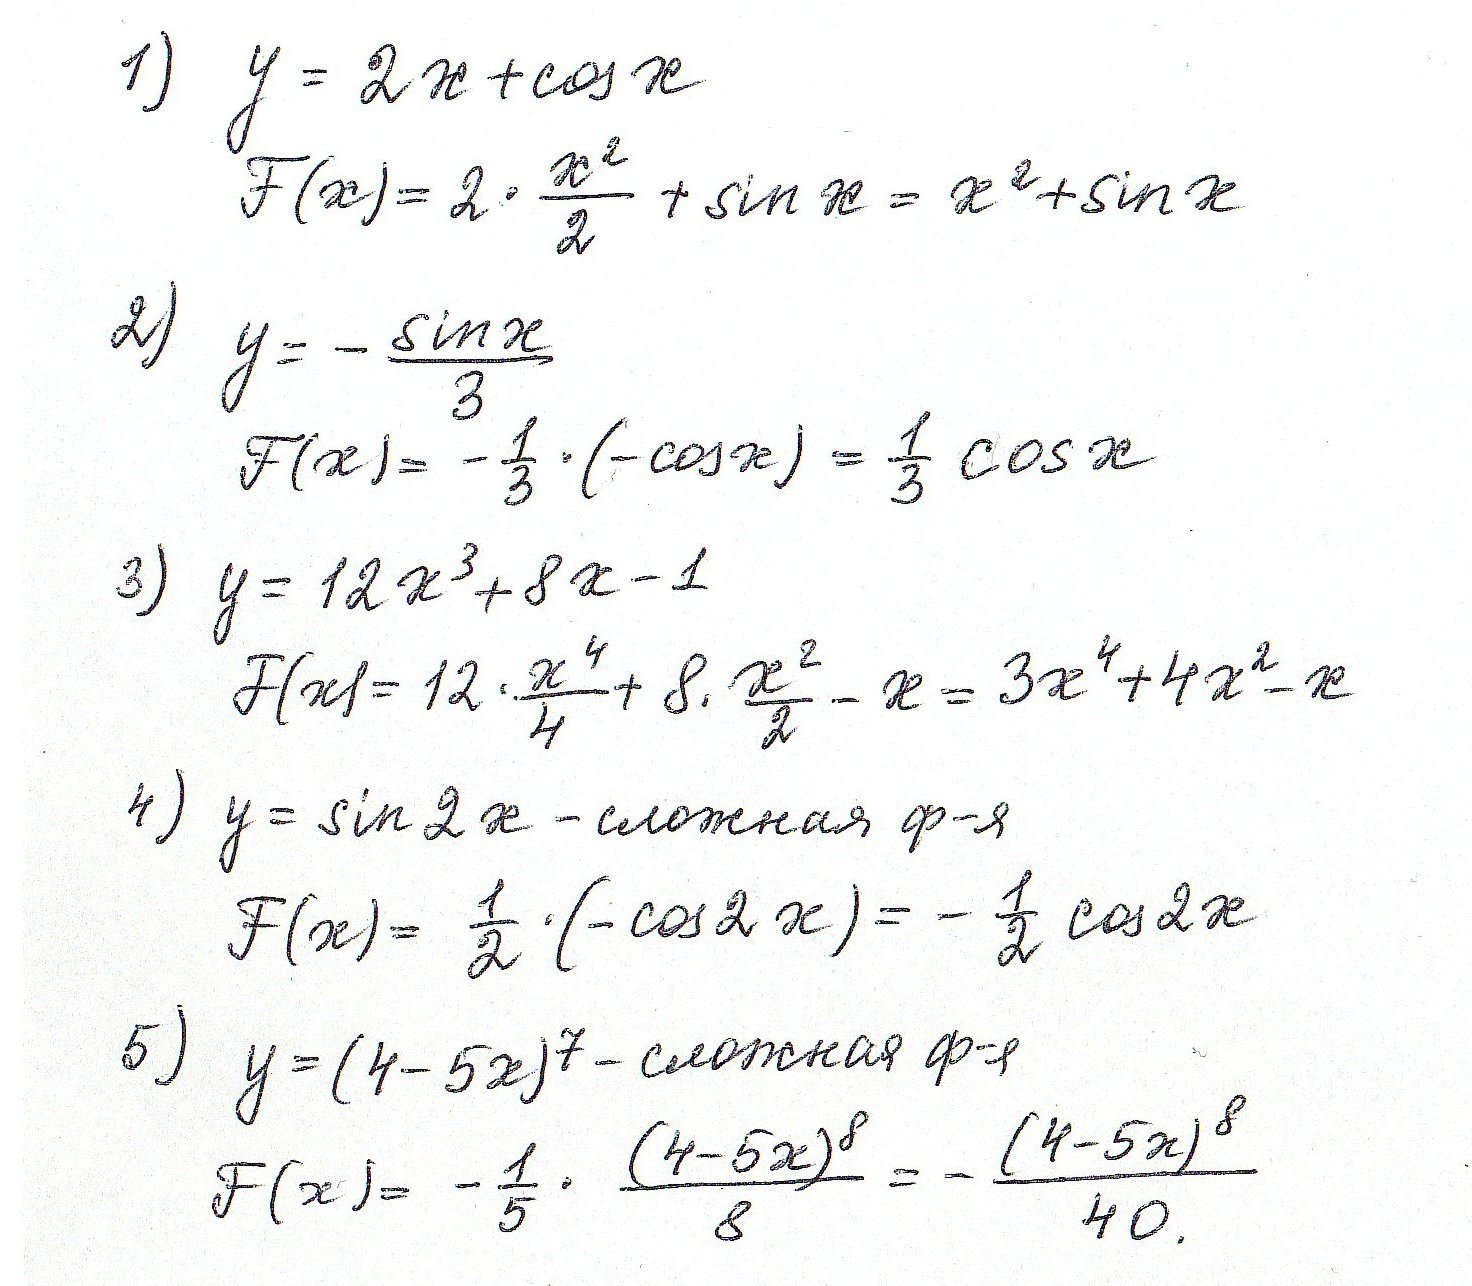 1) y = 2x + cos x
F(x) = 2 · x²/2 + sin x = x² + sin x
2) y = - sin x/3
F(x) = - 1/3 · (- cos x) = 1/3 cos x
3) y = 12x³ + 8x - 1
F(x) = 12 · x⁴/4 + 8 · x²/2 - x = 3x⁴ + 4x² - x
4) y = sin 2x - сложная ф-я
F(x) = 1/2 · (- cos 2x) = - 1/2 cos 2x
5) y = (4 - 5x)⁷ - сложная ф-я
F(x) = - 1/5 · (4 - 5x)⁸/8 = - (4 - 5x)⁸/40.